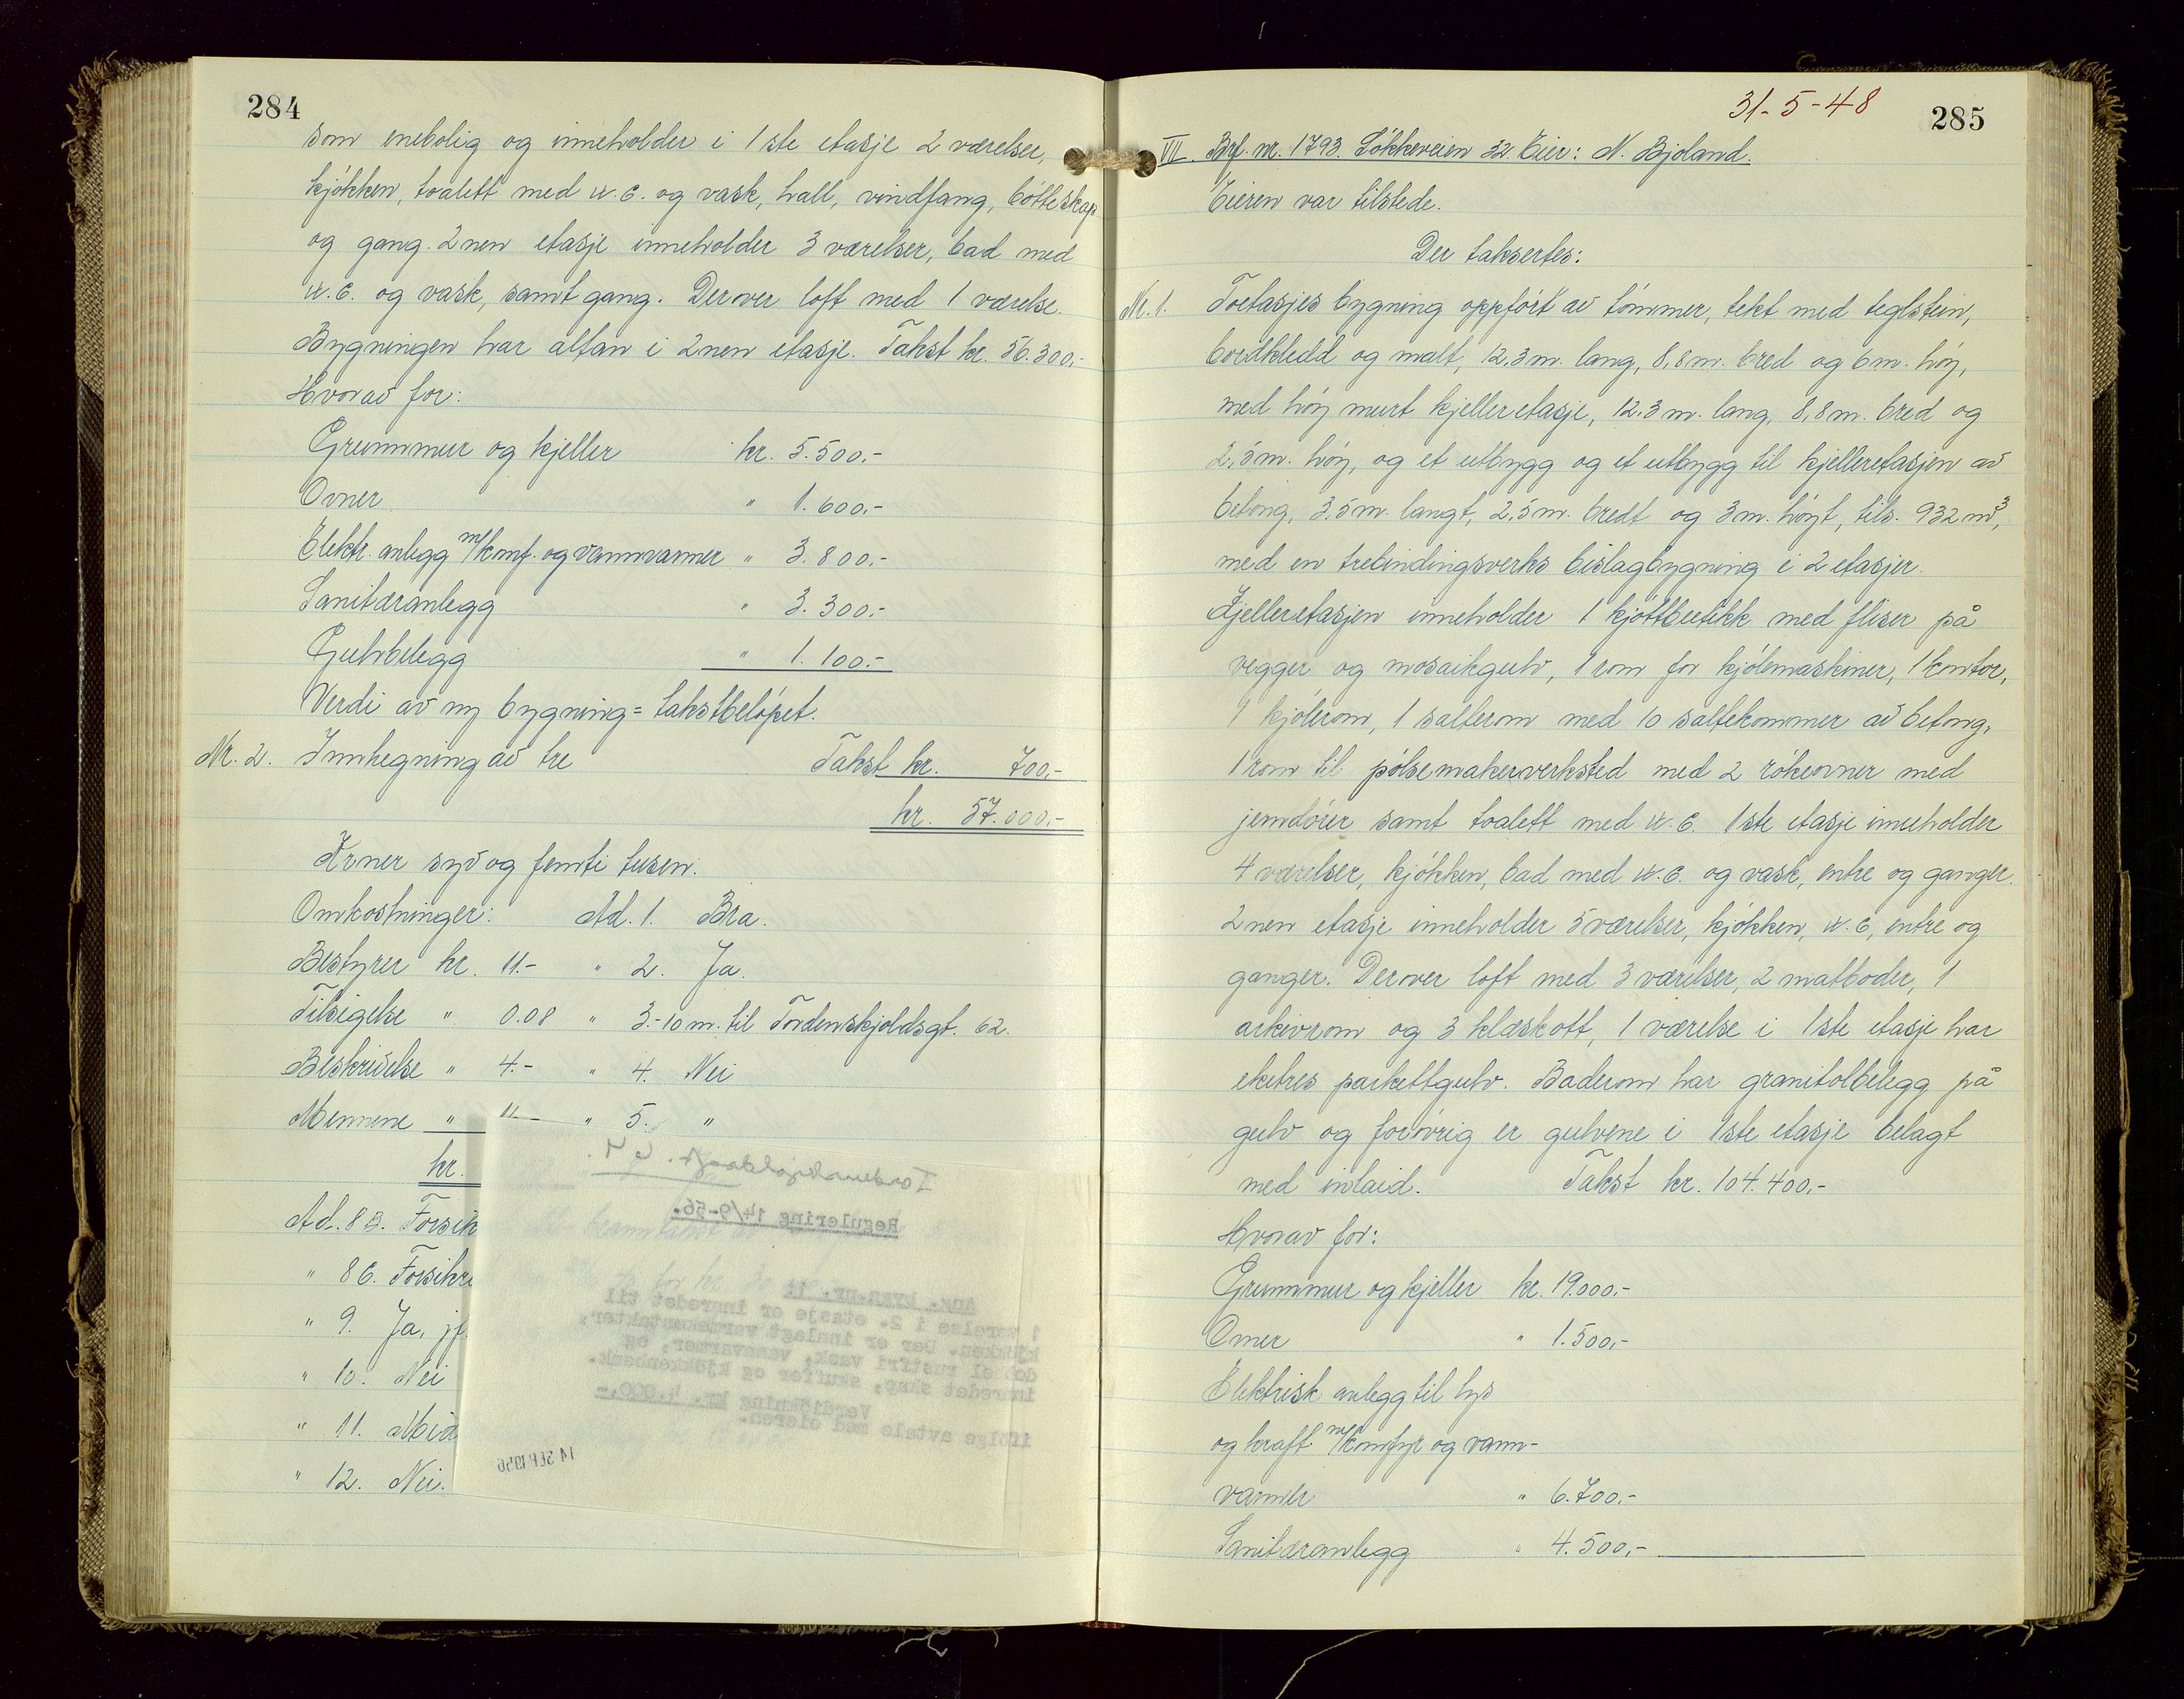 284
som enebolig og inneholder i 1ste etasje 2 værelser,
kjøkken, toalett med w.c. og vask, hall, vindfang, bøtteskap
og gang. 2nen etasje inneholder 3 værelser, bad med
w.c. og vask, samt gang. Derover loft med 1 værelse.
Bygningen har altan i 2nen etasje. Takst kr. 56.300,-
Hvorav for:
Grunnmur og kjeller kr. 5.500.-
Ovner " 1.600,-
Elektr. anlegg m/komf. og vannvarmer " 3.800,-
Sanitæranlegg " 3.300,-
Gulvbelegg " 1.100.-
Verdi av ny bygning = takstbeløpet.
Nr. 2. Innhegning av tre Takst kr. 700,-
kr. 57.000,-
Kroner syv og femti tusen.
Omkostninger: Ad. 1. Bra.
Bestyrer kr. 11.- " 2. Ja.
Tilsigelse " 0.08 " 3.-10 m. til Tordenskjoldsgt. 62.
Beskrivelse " 4.- " 4. Nei
Mennene " 11.- " 5. "
kr.
Ad. 8B. Forsik
" 8C. Forsikr
" 9. Ja, jf.
" 10. Nei
" 11. Mid
" 12. Nei.
Tordenskjoldsgt. 64.
Regulering 14/9-56.
Anm. bygn.nr. 1:
1 værelse i 2. etasje er innredet til
kjøkken. Der er innlagt varmekontakter,
dobbel rustfri vask, vannvarmer, og
innredet skap, skuffer og kjøkkenbenk.
Verdiökning kr. 4.000.-
ifölge avtale med eieren.
14 SEP. 1956
31-5-48
285
VII. Brf. nr. 1793. Løkkeveien 32. Eier: N. Bjoland.
Eieren var tilstede.
Der taksertes:
Nr. 1. Toetasjes bygning oppført av tømmer, tekt med teglstein,
bordkledd og malt, 12,3 m. lang, 8,8 m. bred og 6 m. høy,
med høy murt kjelleretasje, 12,3 m. lang, 8,8 m. bred og
2,5 m. høy, og et utbygg og et utbygg til kjelleretasjen av
betong, 3,5 m. langt, 2,5 m. bredt og 3 m. høyt, tils. 932 m³,
med en trebindingsverks bislagbygning i 2 etasjer.
Kjelleretasjen inneholder 1 kjøttbutikk med fliser på
vegger og mosaikgulv, 1 rom for kjølemaskiner, 1 kontor,
1 kjølerom, 1 salterom med 10 saltekommer av betong,
1 rom til pølsemakerverksted med 2 røkeovner med
jerndører samt toalett med w.c. 1ste etasje inneholder
4 værelser, kjøkken, bad med w.c. og vask, entre og ganger.
2nen etasje inneholder 5 værelser, kjøkken, w.c, entre og
ganger. Derover loft med 3 værelser, 2 matboder, 1
arkivrom og 3 kleskott, 1 værelse i 1ste etasje har
eketres parkettgulv. Baderom har granitolbelegg på
gulv og forøvrig er gulvene i 1ste etasje belagt
med inlaid. Takst kr. 104.400,-
Hvorav for:
Grunnmur og kjeller kr. 19.000.-
Ovner " 1.500,-
Elektrisk anlegg til lys
og kraft m/komfyr og vann-
varmer " 6.700.-
Sanitæranlegg " 4.500,-